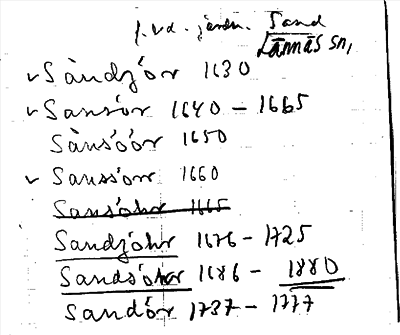 f. vd. jèrdn. Sand
Lännäs sn,
v Sàndjór 1630
v Sansór 1640 - 1665
Sànsóór 1650
v Saussorr 1660
Sansóhr 1665
Sandjóhr 1676 - 1725
Sandsóhr 1686 - 1880
Sandór 1737 - 1777